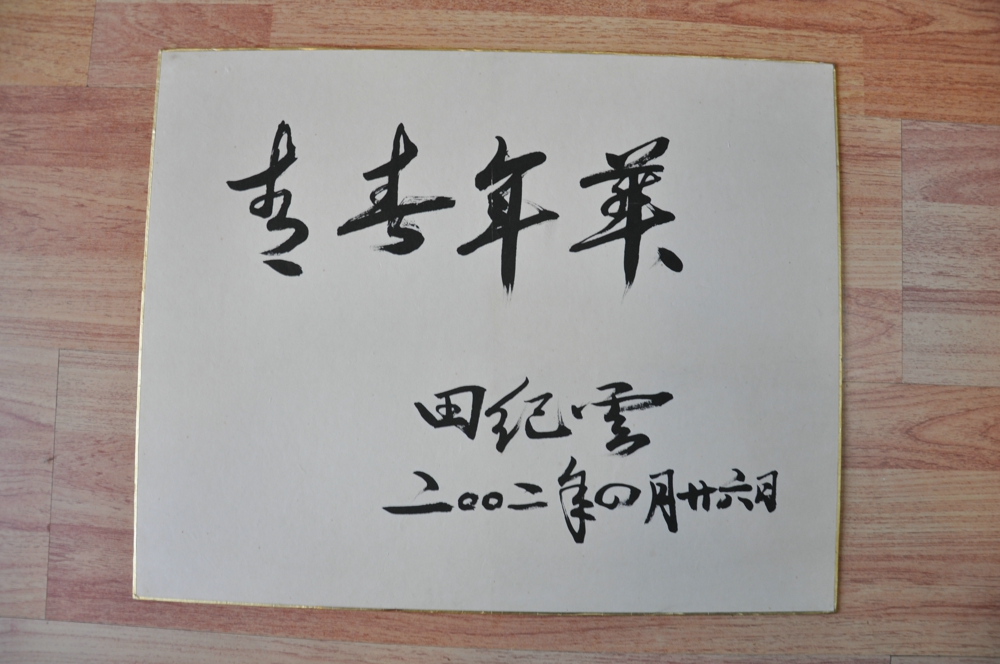 青春年華
田纪雲
二〇〇二年四月廿六日